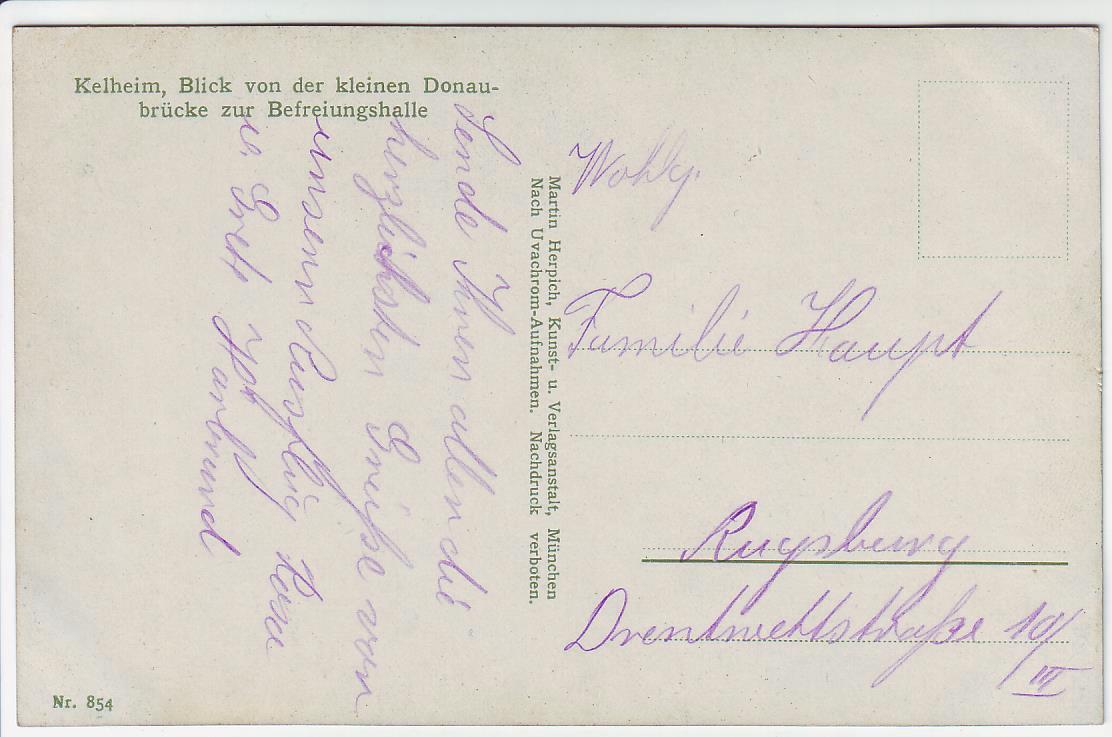 Kelheim, Blick von der kleinen Donau-
brücke zur Befreiungshalle
Sende Ihnen allen die
herzlichsten Grüße vom
unseren Ausflug
u.
Martin Herpich, Kunst- u. Verlagsanstalt, München
Nach Uvachrom-Aufnahmen. Nachdruck verboten.
Wohlg.
Familie Haupt
Augsburg
Drentwettstraße 10/
III
Nr. 854